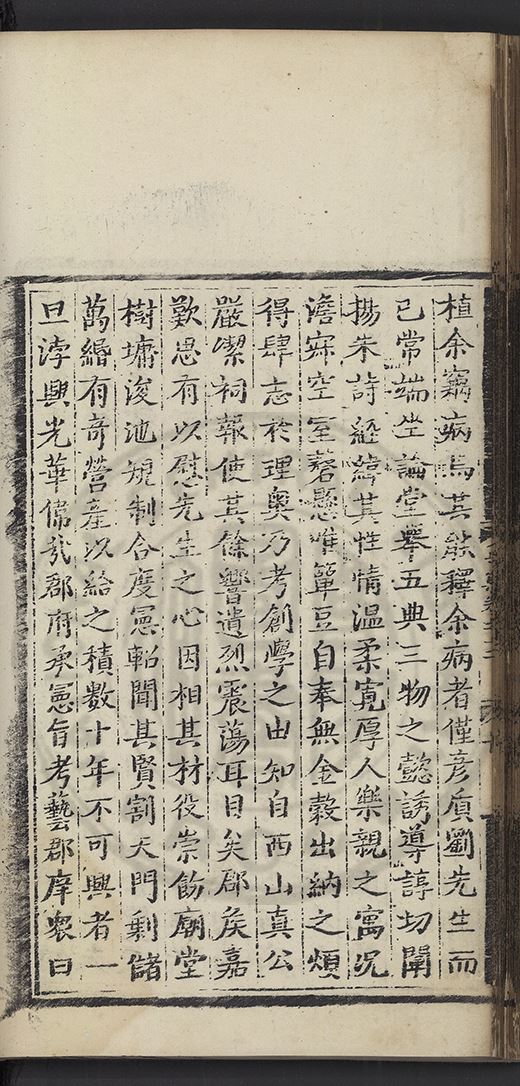 植余竊病焉其能釋余病者僅彥質劉先生而
已常端坐論堂舉五典三物之懿誘導諄切闡
揚朱詩經緯其性情溫柔寬厚人樂親之寓況
澹寂空室罄懸唯簞豆自奉無金穀出納之煩
得肆志於理奧乃考創學之由知自西山真公
嚴潔祠報使其餘響遺烈震蕩耳目矣郡侯嘉
歎思有以慰先生之心因相其材役崇飭廟堂
樹墉浚池規制合度憲軺聞其賢割天門剩儲
萬緡有奇營產以給之積數十年不可興者一
旦浡興光華偉哉郡府承憲旨考藝郡庠衆曰